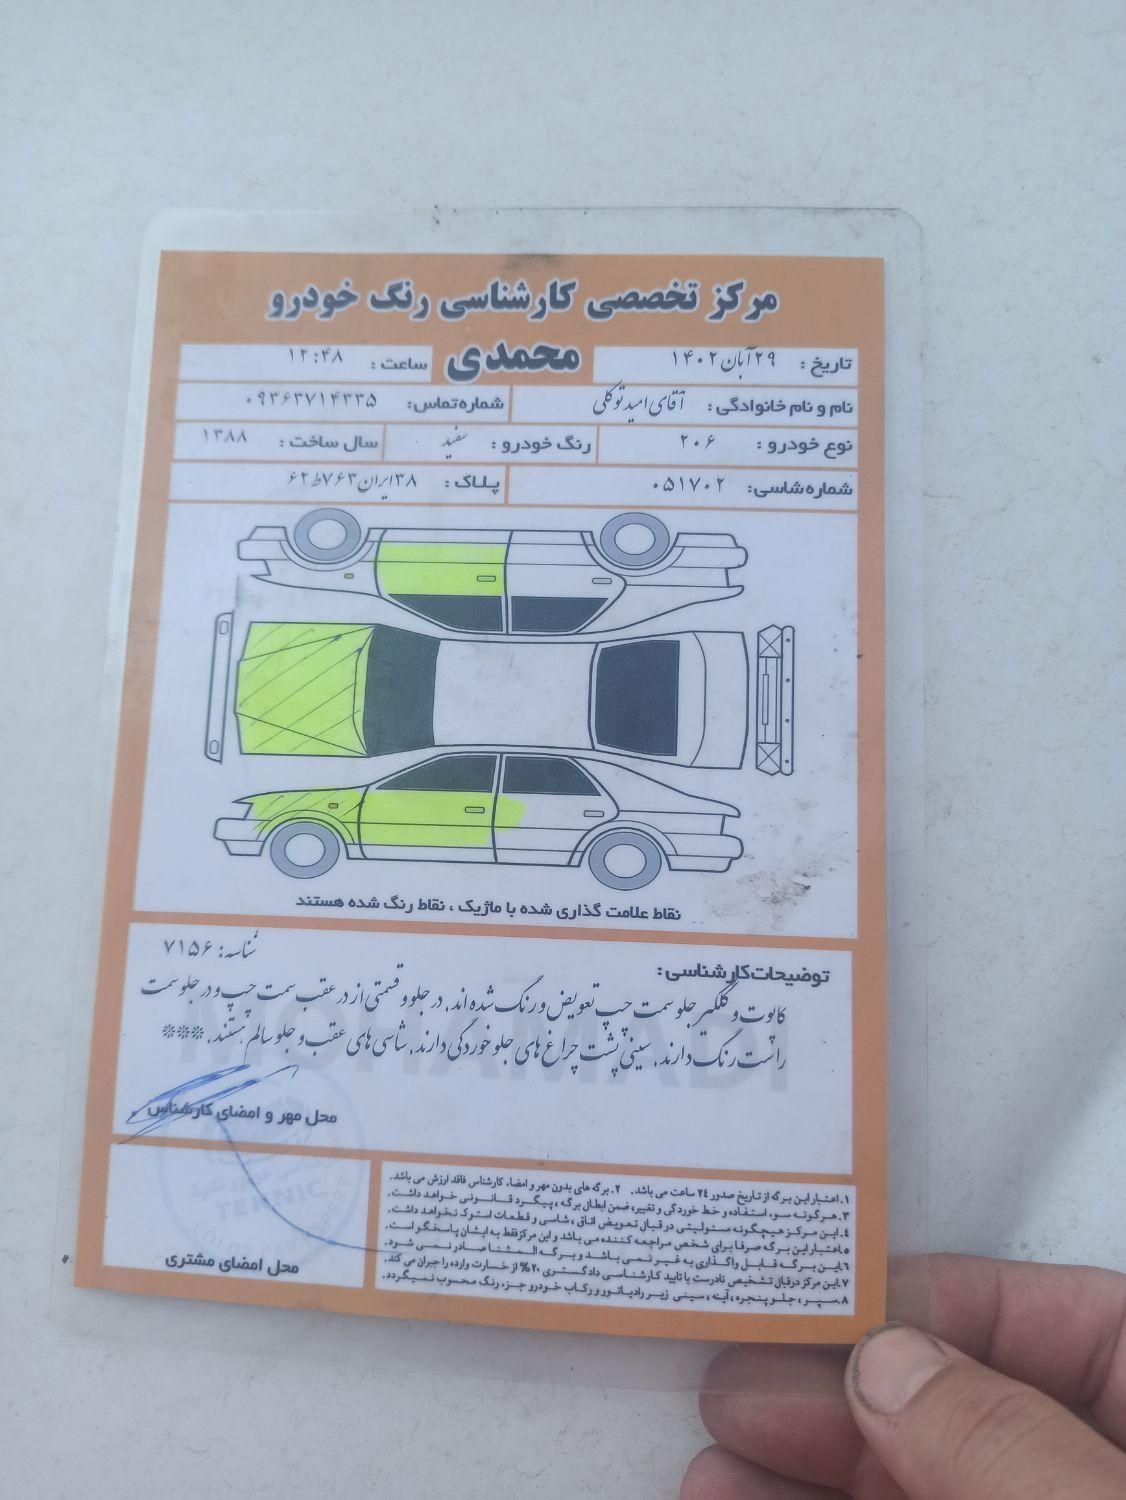 مرکز تخصصی کارشناسی رنگ خودرو
محمدی
تاریخ : ۲۹ آبان ۱۴۰۲ ساعت : ۱۲:۴۸
نام و نام خانوادگی : آقای امید توکلی شماره تماس: ۰۹۳۶۳۷۱۴۳۳۵
نوع خودرو : ۲۰۶ رنگ خودرو : سفید سال ساخت : ۱۳۸۸
شماره شاسی: ۰۵۱۷۰۲ پلاک : ۳۸ایران۷۶۳ط۶۲
نقاط علامت گذاری شده با ماژیک ، نقاط رنگ شده هستند
توضیحات کارشناسی : شناسه: ۷۱۵۶
کاپوت و گلگیر جلو سمت چپ تعویض و رنگ شده اند. در جلو و قسمتی از در عقب سمت چپ و در جلو سمت
راست رنگ دارند. سینی پشت چراغ های جلو خوردگی دارند. شاسی های عقب و جلو سالم هستند. ***
MOHAMADI
محل مهر و امضای کارشناس
TEKNIC
محل امضای مشتری
۱. اعتبار این برگه از تاریخ صدور ۲۴ ساعت می باشد. ۲. برگه های بدون مهر و امضاء کارشناس فاقد ارزش می باشد.
۳. هر گونه سوء استفاده و خط خوردگی و تغییر، ضمن ابطال برگه ، پیگرد قانونی خواهد داشت.
۴. این مرکز هیچگونه مسئولیتی در قبال تعویض اتاق ، شاسی و قطعات استوک نخواهد داشت.
۵. اعتبار این برگه صرفا برای شخص مراجعه کننده می باشد و این مرکز فقط به ایشان پاسخگو است.
۶. این برگه قابل واگذاری به غیر نمی باشد و برگه المثنا صادر نمی شود.
۷. این مرکز در قبال تشخیص نادرست با تایید کارشناسی دادگستری ۲۰% از خسارت وارده را جبران می کند.
۸. سپر ، جلو پنجره ، آینه ، سینی زیر رادیاتور و رکاب خودرو جزء رنگ محسوب نمیگردد.